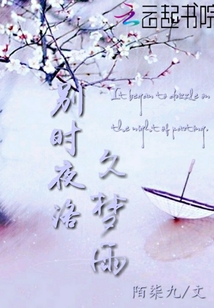 云起书院
别时夜洛
久梦雨
It began to drizzle on
the night of parting.
陌柒九/文